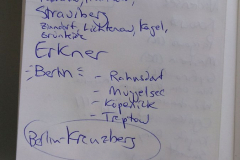 Strausberg
Zinndorf, Lichtenow, Kagel,
Grünheide
Erkner
-Berlin-
- Rahnsdorf
- Müggelsee
- Köpenick
- Treptow
Berlin-Kreuzberg